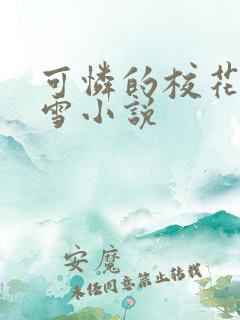 可憐的校花
雪小説
安魔
未经同意禁止转载